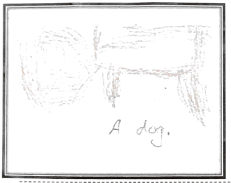 A dog.